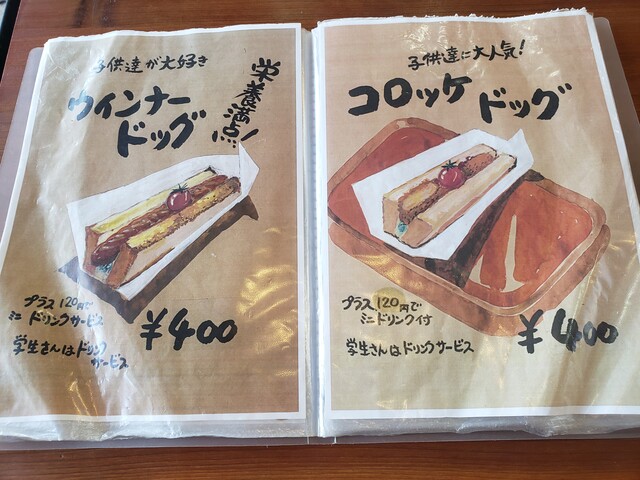 子供達が大好き
栄養満点!
ウインナー
ドッグ
プラス120円で
ミニドリンクサービス
学生さんはドリンク
サービス
¥400
子供達に大人気!
コロッケ
ドッグ
プラス120円で
ミニドリンク付
学生さんはドリンクサービス
¥400